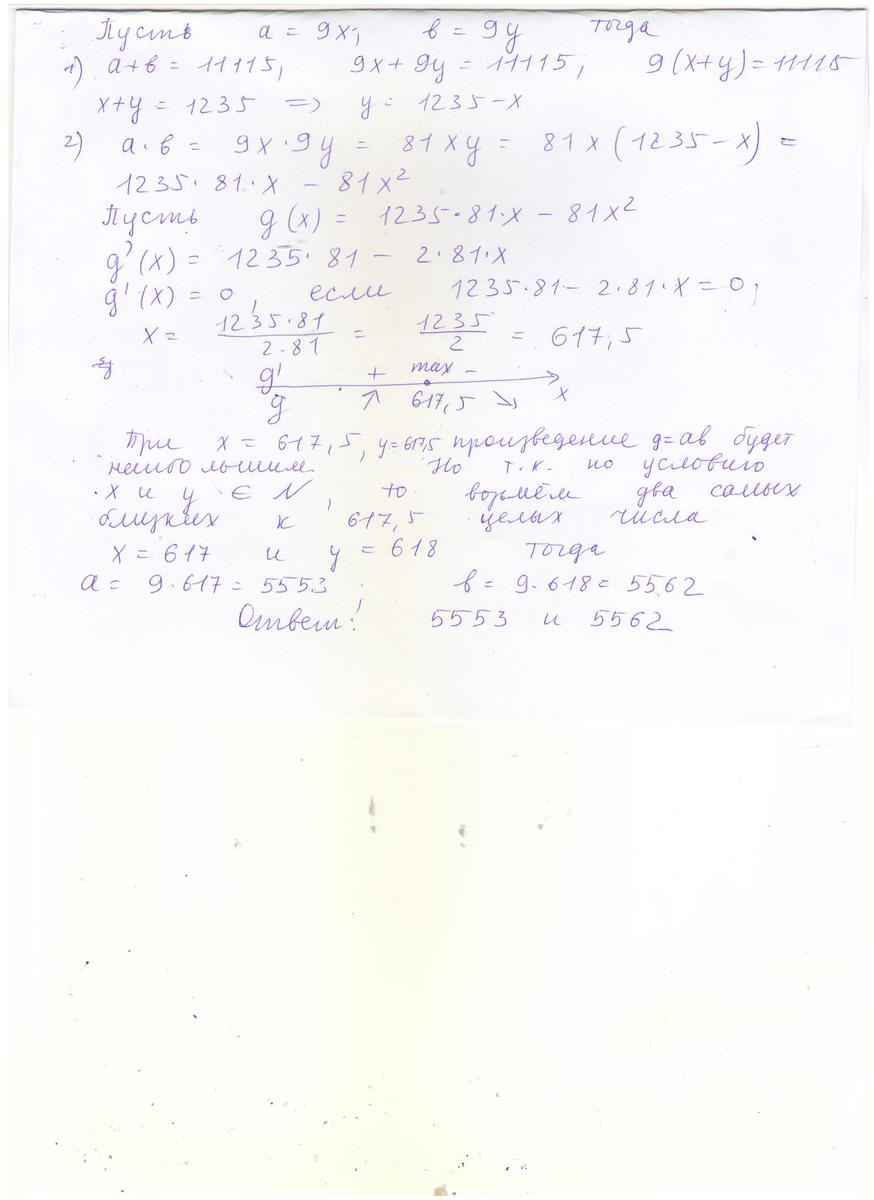 Пусть a = 9x; в = 9y тогда
1) a+в = 11115; 9x + 9y = 11115; 9(x+y) = 11115
x+y = 1235 => y = 1235-x
2) a·в = 9x·9y = 81xy = 81x(1235-x) =
1235·81·x - 81x²
Пусть g(x) = 1235·81·x - 81x²
g'(x) = 1235·81 - 2·81·x
g'(x) = 0, если 1235·81 - 2·81·x = 0;
x = 1235·81/2·81 = 1235/2 = 617,5
g' + max -
g ↗ 617,5 ↘ x
При x = 617,5, y=617,5 произведение g=aв будет
наибольшим. Но т.к. по условию
x и y ∈ N, то возьмём два самых
близких к 617,5 целых числа
x = 617 и y = 618 тогда
a = 9·617 = 5553; в = 9·618 = 5562
Ответ: 5553 и 5562